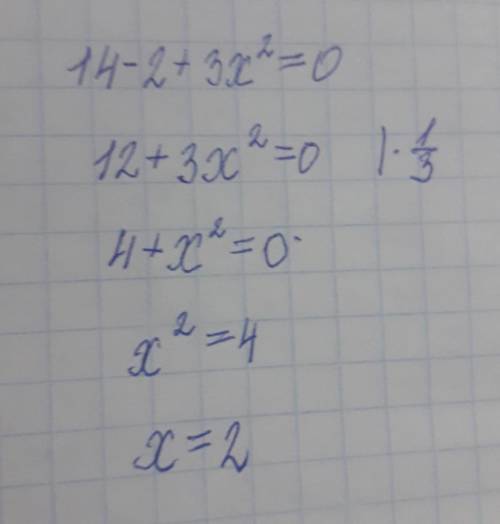 14-2+3x²=0
12+3x²=0 |·1/3
4+x²=0
x²=4
x=2